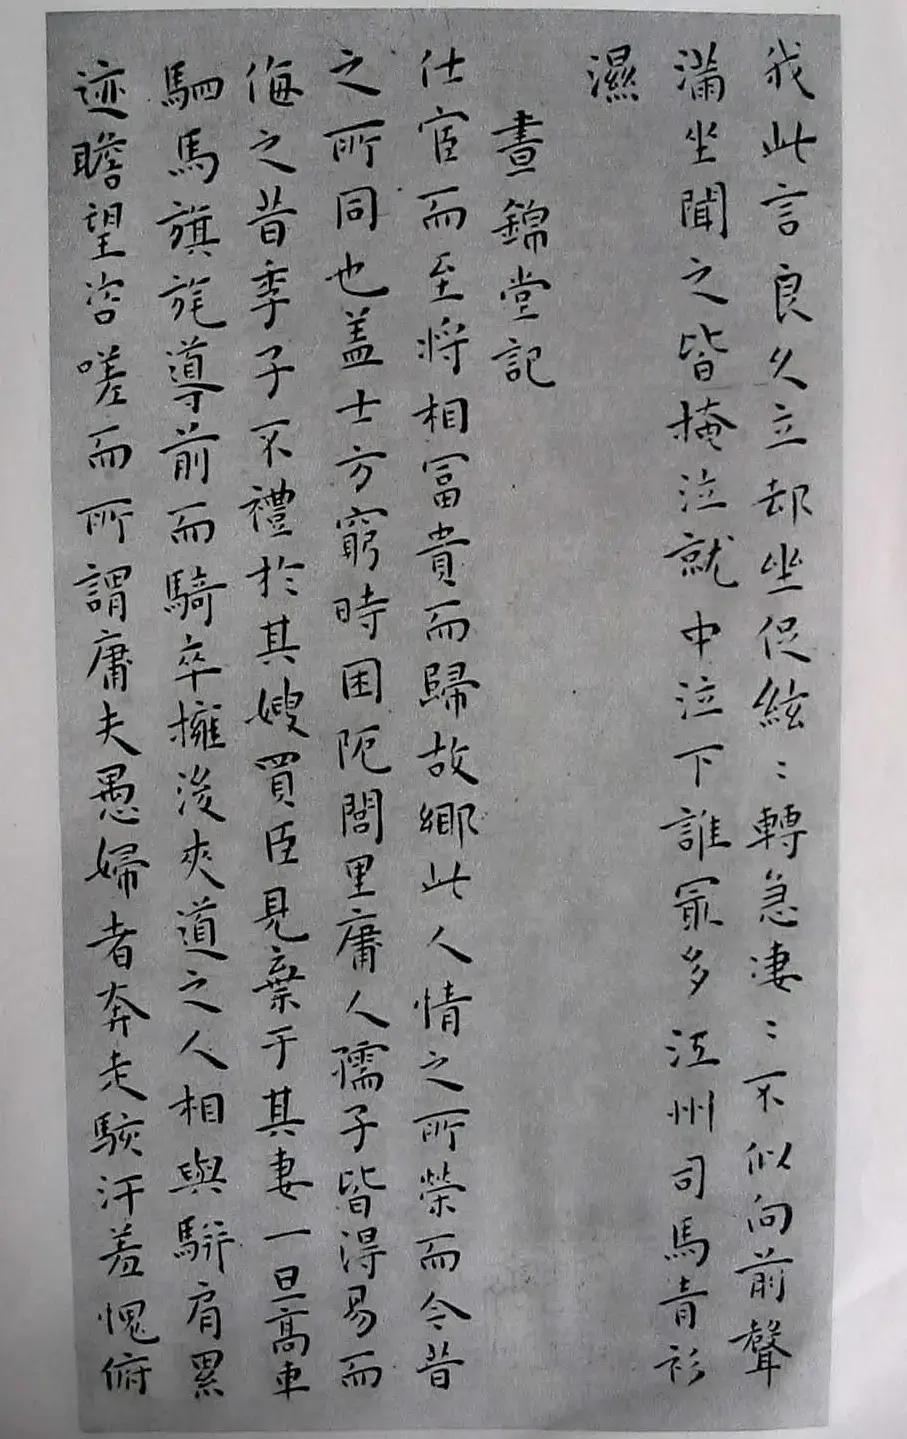 我此言良久立却坐促絃〻轉急淒〻不似向前聲
滿坐聞之皆掩泣就中泣下誰冣多江州司馬青衫
濕
晝錦堂記
仕宦而至將相冨貴而歸故鄉此人情之所榮而今昔
之所同也盖士方窮時困阨閭里庸人孺子皆得易而
侮之昔季子不禮於其嫂買臣見棄于其妻一旦高車
駟馬旗旄導前而騎卒擁後夾道之人相與駢肩累
迹瞻望咨嗟而所謂庸夫愚婦者奔走駭汗羞愧俯